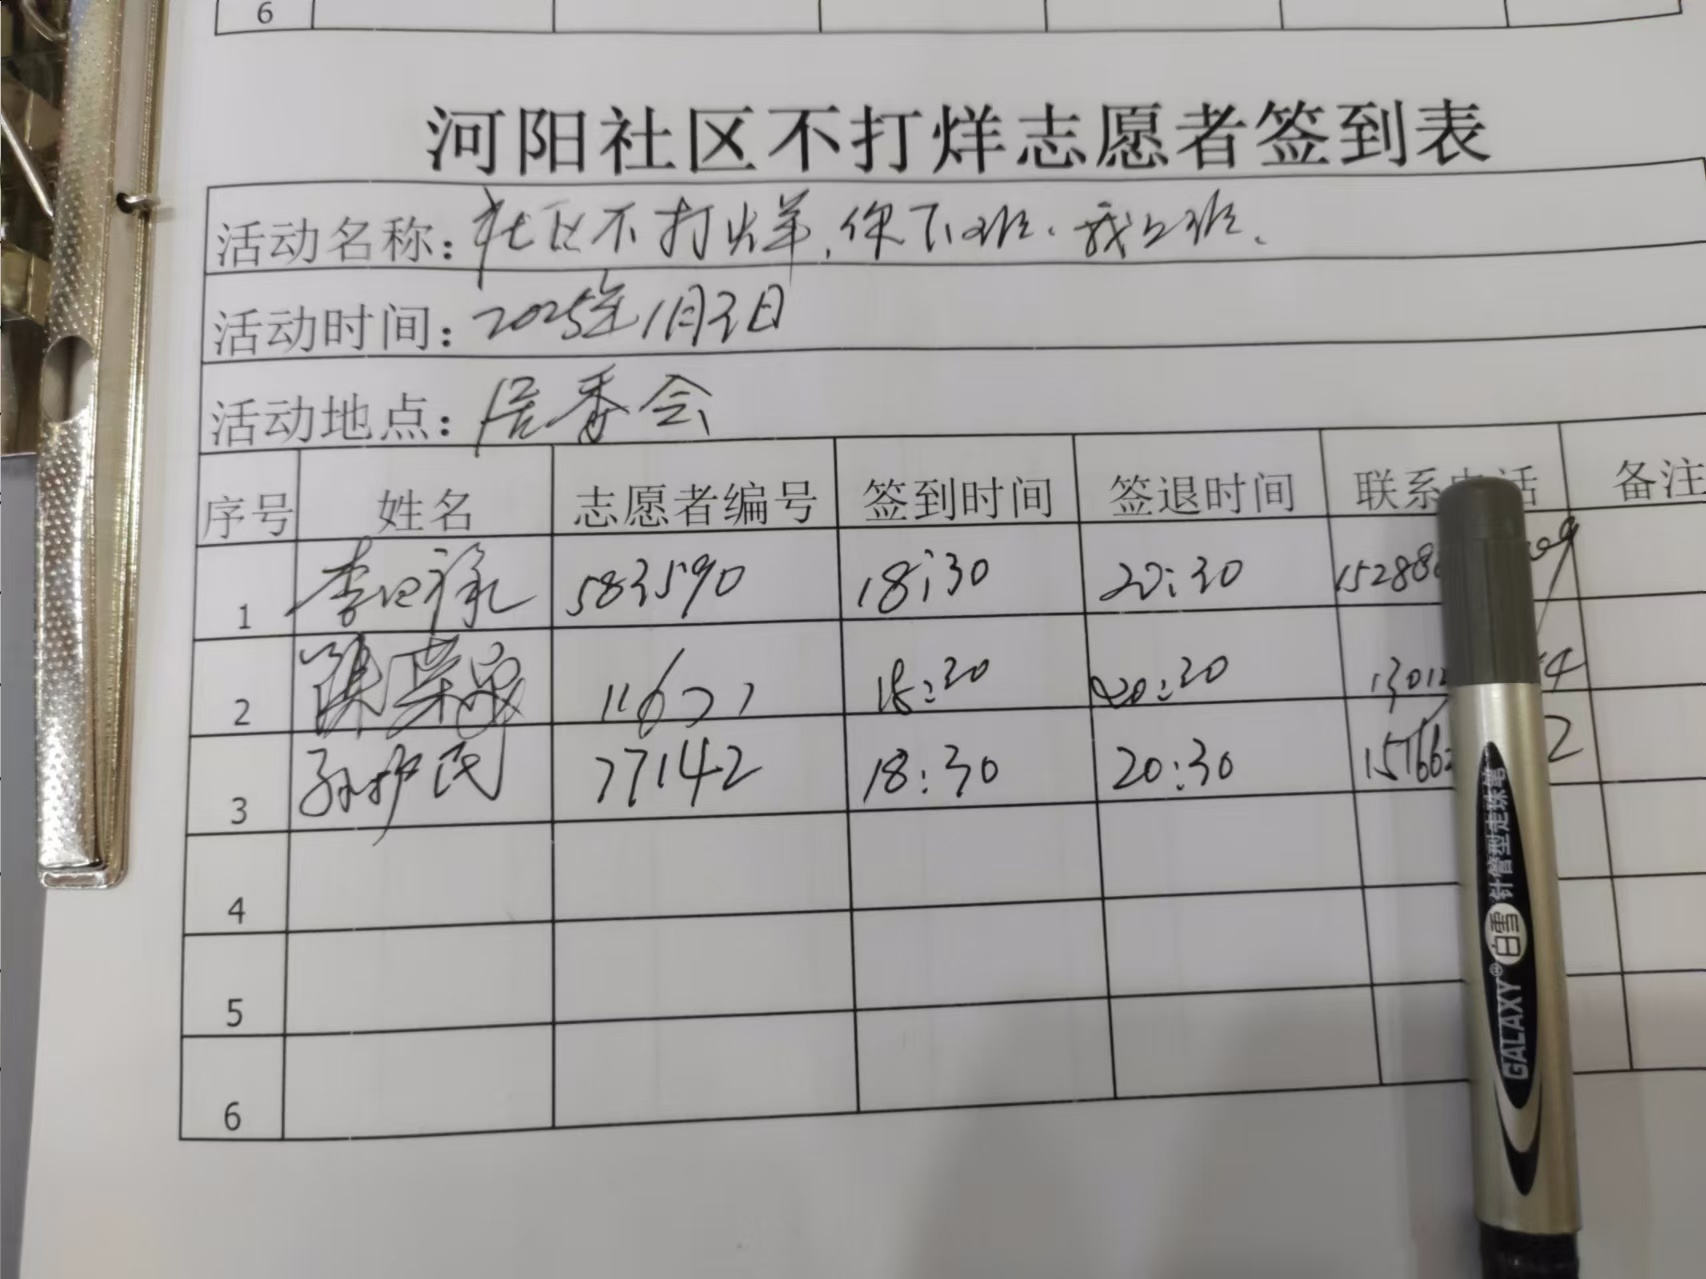 6
河阳社区不打烊志愿者签到表
活动名称：社区不打烊，你下班．我上班．
活动时间：2025年1月3日
活动地点：居委会
序号 姓名 志愿者编号 签到时间 签退时间 联系电话 备注
1 李 583590 18:30 20:30 15288
2 陈荣 18:30 20:30 1301 4
3 孙护民 77142 18:30 20:30 15166 2
4
5
6
GALAXY® 白雪 针管型走珠笔